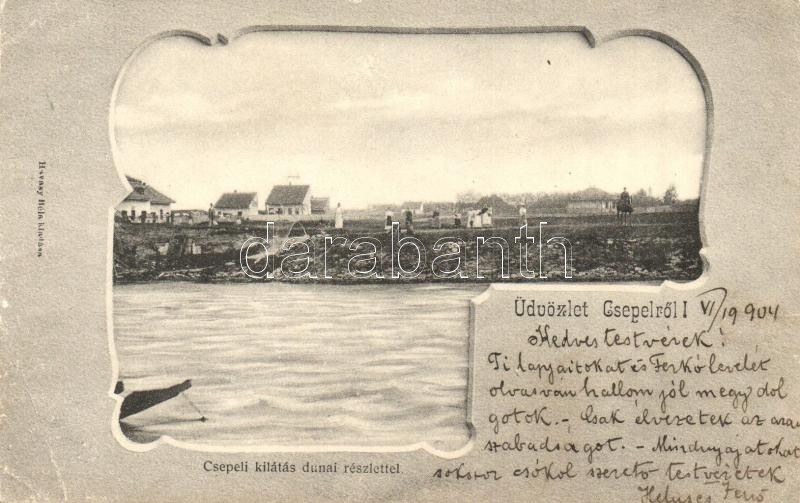 Havasy Béla kiadása
darabanth
Üdvözlet Csepelről! VI/19 904
Kedves testvérek!
Ti lapjaitokat és Ferkó levelét
olvasván hallom jól megy dol
gotok. – Csak élvezzétek az
szabadságot. – Mindnyájatokat
sokszor csókol szerető testvéretek
Ferkó
Csepeli kilátás dunai részlettel.